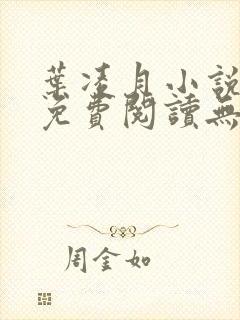 葉凌月小説
免費閱讀無
周金如